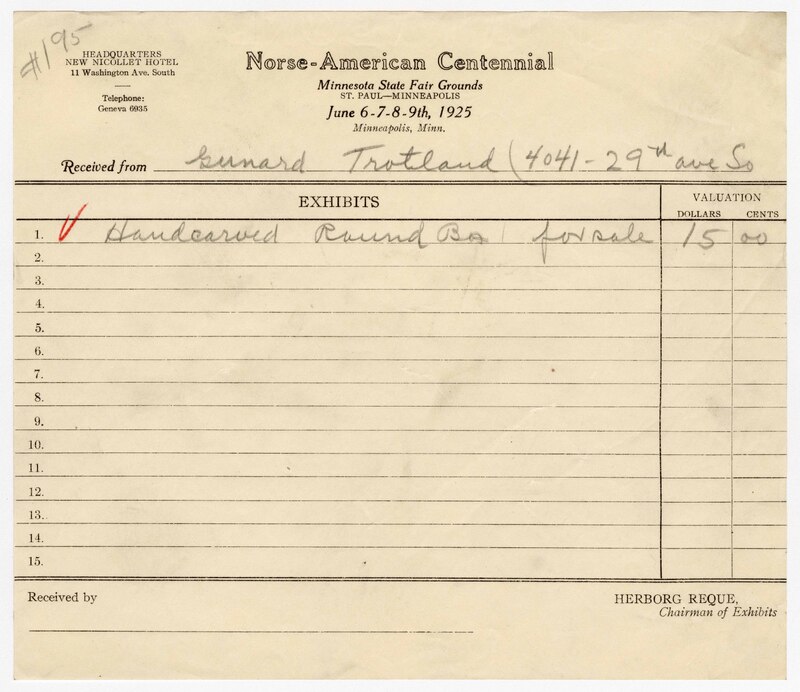 #195
HEADQUARTERS
NEW NICOLLET HOTEL
11 Washington Ave. South
Telephone:
Geneva 6935
Norse-American Centennial
Minnesota State Fair Grounds
ST. PAUL—MINNEAPOLIS
June 6-7-8-9th, 1925
Minneapolis, Minn.
Received from Gunard Trotland (4041-29th ave So
EXHIBITS
VALUATION
DOLLARS CENTS
1. Handcarved Round Box for sale 15 00
2.
3.
4.
5.
6.
7.
8.
9.
10.
11.
12.
13.
14.
15.
Received by
HERBORG REQUE,
Chairman of Exhibits